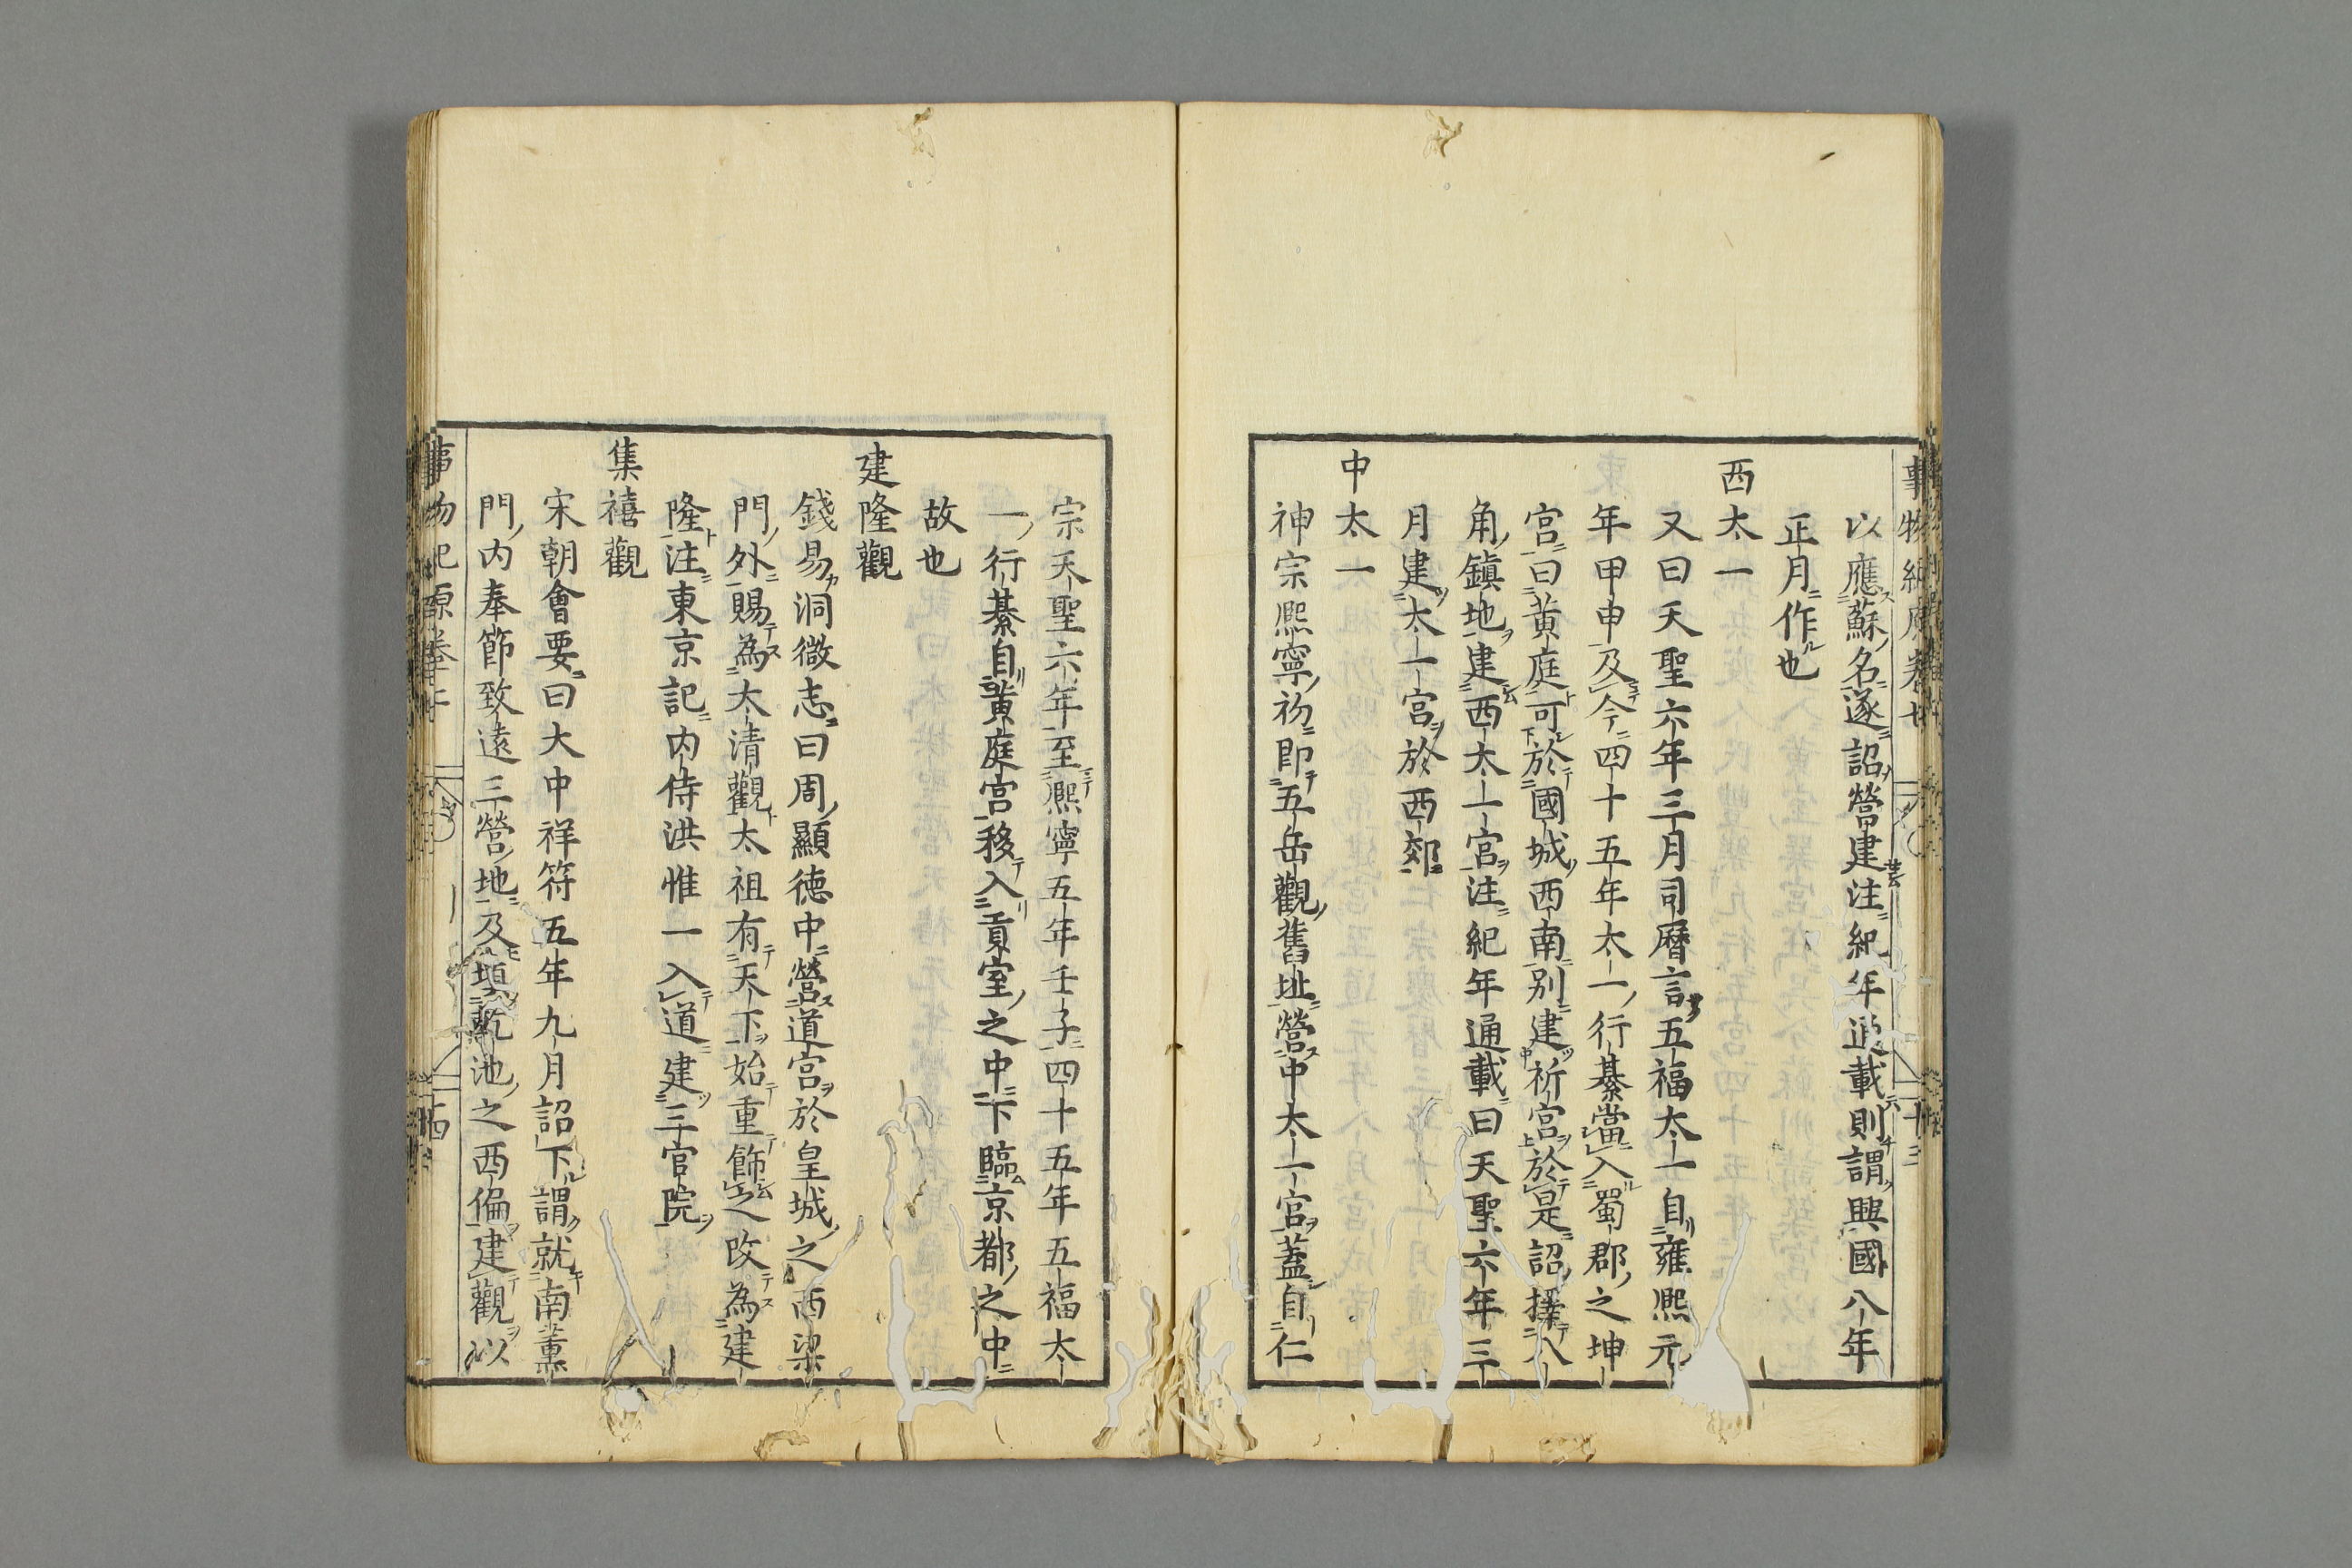 以應蘇名遂詔營建注紀年通載則謂興國八年
正月作也
西太一
又曰天聖六年三月司曆言五福太一自雍熙元
年甲申及今四十五年太一行綦當入蜀郡之坤
宮曰黃庭可於國城西南別建祈宮於是詔擇八
角鎮地建西太一宮注紀年通載曰天聖六年三
月建太一宮於西郊
中太一
神宗熙寧初即五岳觀舊址營中太一宮蓋自仁
宗天聖六年至熙寧五年壬子四十五年五福太
一行綦自黃庭宮移入貢室之中下臨京都之中
故也
建隆觀
錢易洞微志曰周顯德中營道宮於皇城之西梁
門外賜為太清觀太祖有天下始重飾之改為建
隆注東京記內侍洪惟一入道建三官院
集禧觀
宋朝會要曰大中祥符五年九月詔下謂就南薰
門內奉節致遠三營地及填乾池之西偏建觀以